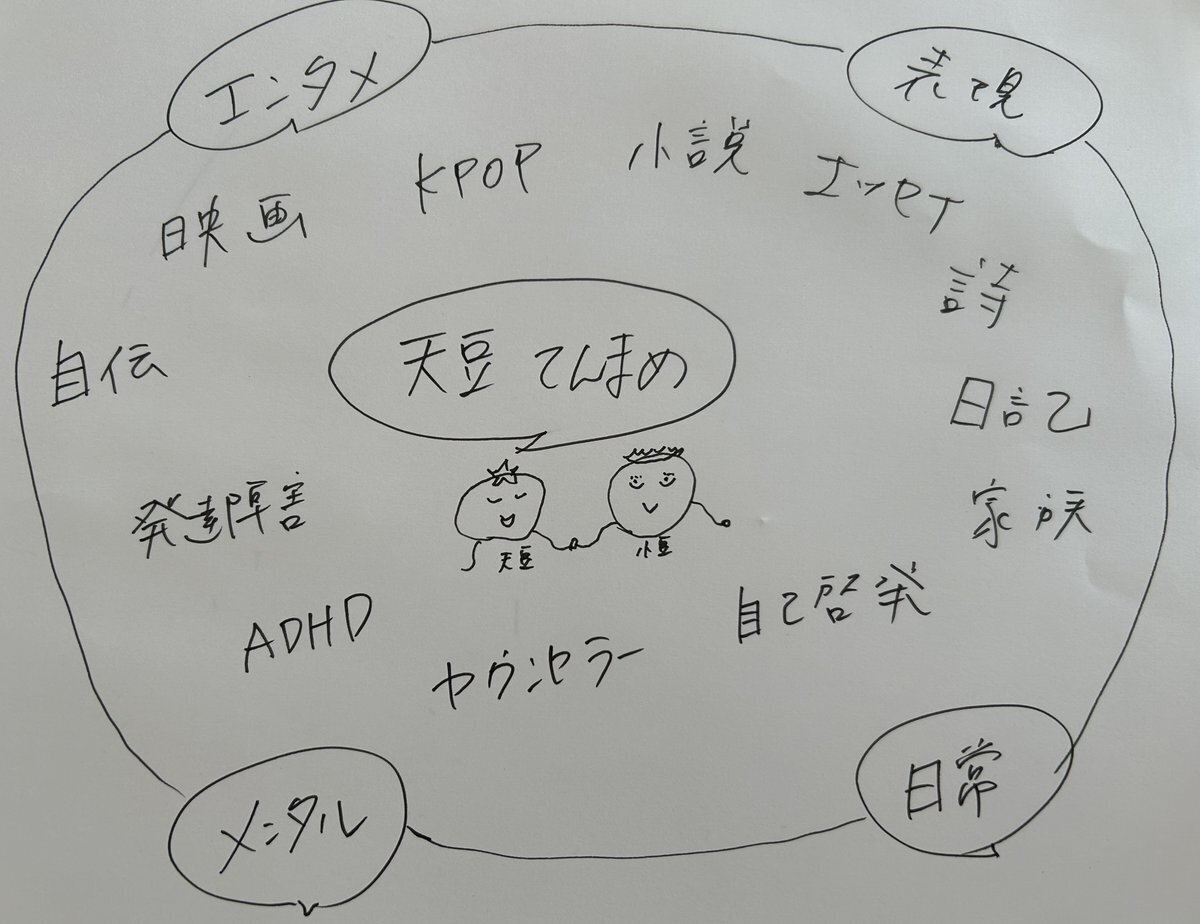 エンタメ
表現
KPOP
小説
エッセイ
映画
詩
自伝
天豆 てんまめ
日記
発達障害
家族
天豆
小豆
ADHD
自己啓発
カウンセラー
メンタル
日常